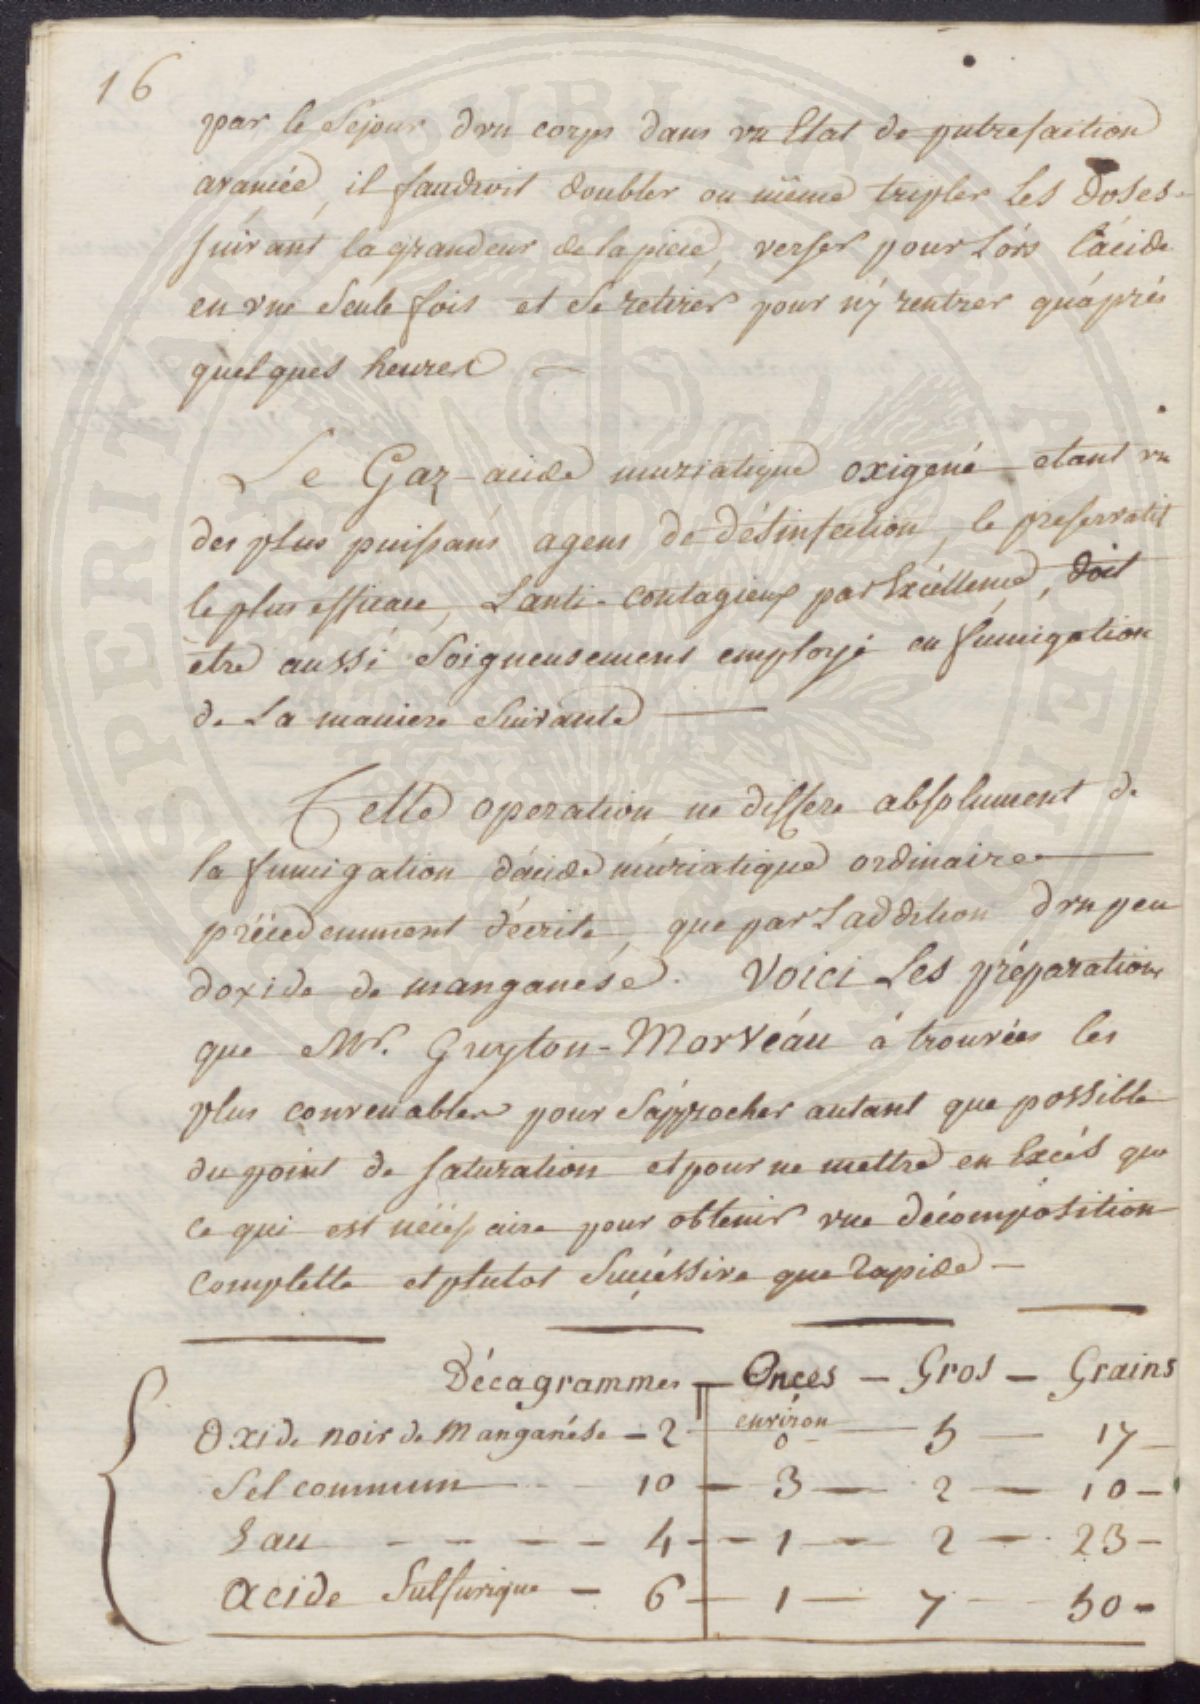 16
par le Sejour d'un corps dans un Etat de putrefaction
avancée, il faudroit doubler ou même tripler les Doses
suivant la grandeur de la piece, verser pour Lórs l'ácide
en une Seule fois et Se retirer pour n'y rentrer qu'áprés
quelques heures —
Le Gaz-acide muriatique oxigené etant un
des plus puissans agens de désinfection, le preservatif
le plus efficace, L'anti-contagieux par Excéllence, doit
être aussi Soigneusement employé en fumigation
de La maniere Suivante —
Cette operation ne differe absolument de
la fumigation d'ácide muriatique ordinaire —
précedemment décrite, que par L'addition d'un peu
d'oxide de manganése. Voici Les préparations
que Mr. Guyton-Morveáu á trouvées les
plus convenables pour S'approcher autant que possible
du point de Saturation et pour ne mettre en Excés que
ce qui est nécessaire pour obtenir une décomposition
Complette et plutot Succéssive que Rapide —
Décagrammes — Onces — Gros — Grains
Oxide noir de Manganése — 2 — environ 0 — 5 — 17 —
Sel commun — 10 — 3 — 2 — 10 —
Eau — — — — 4 — 1 — 2 — 23 —
Acide Sulfurique — 6 — 1 — 7 — 50 —
PROSPERITATI PUBLICAE AUGENDAE